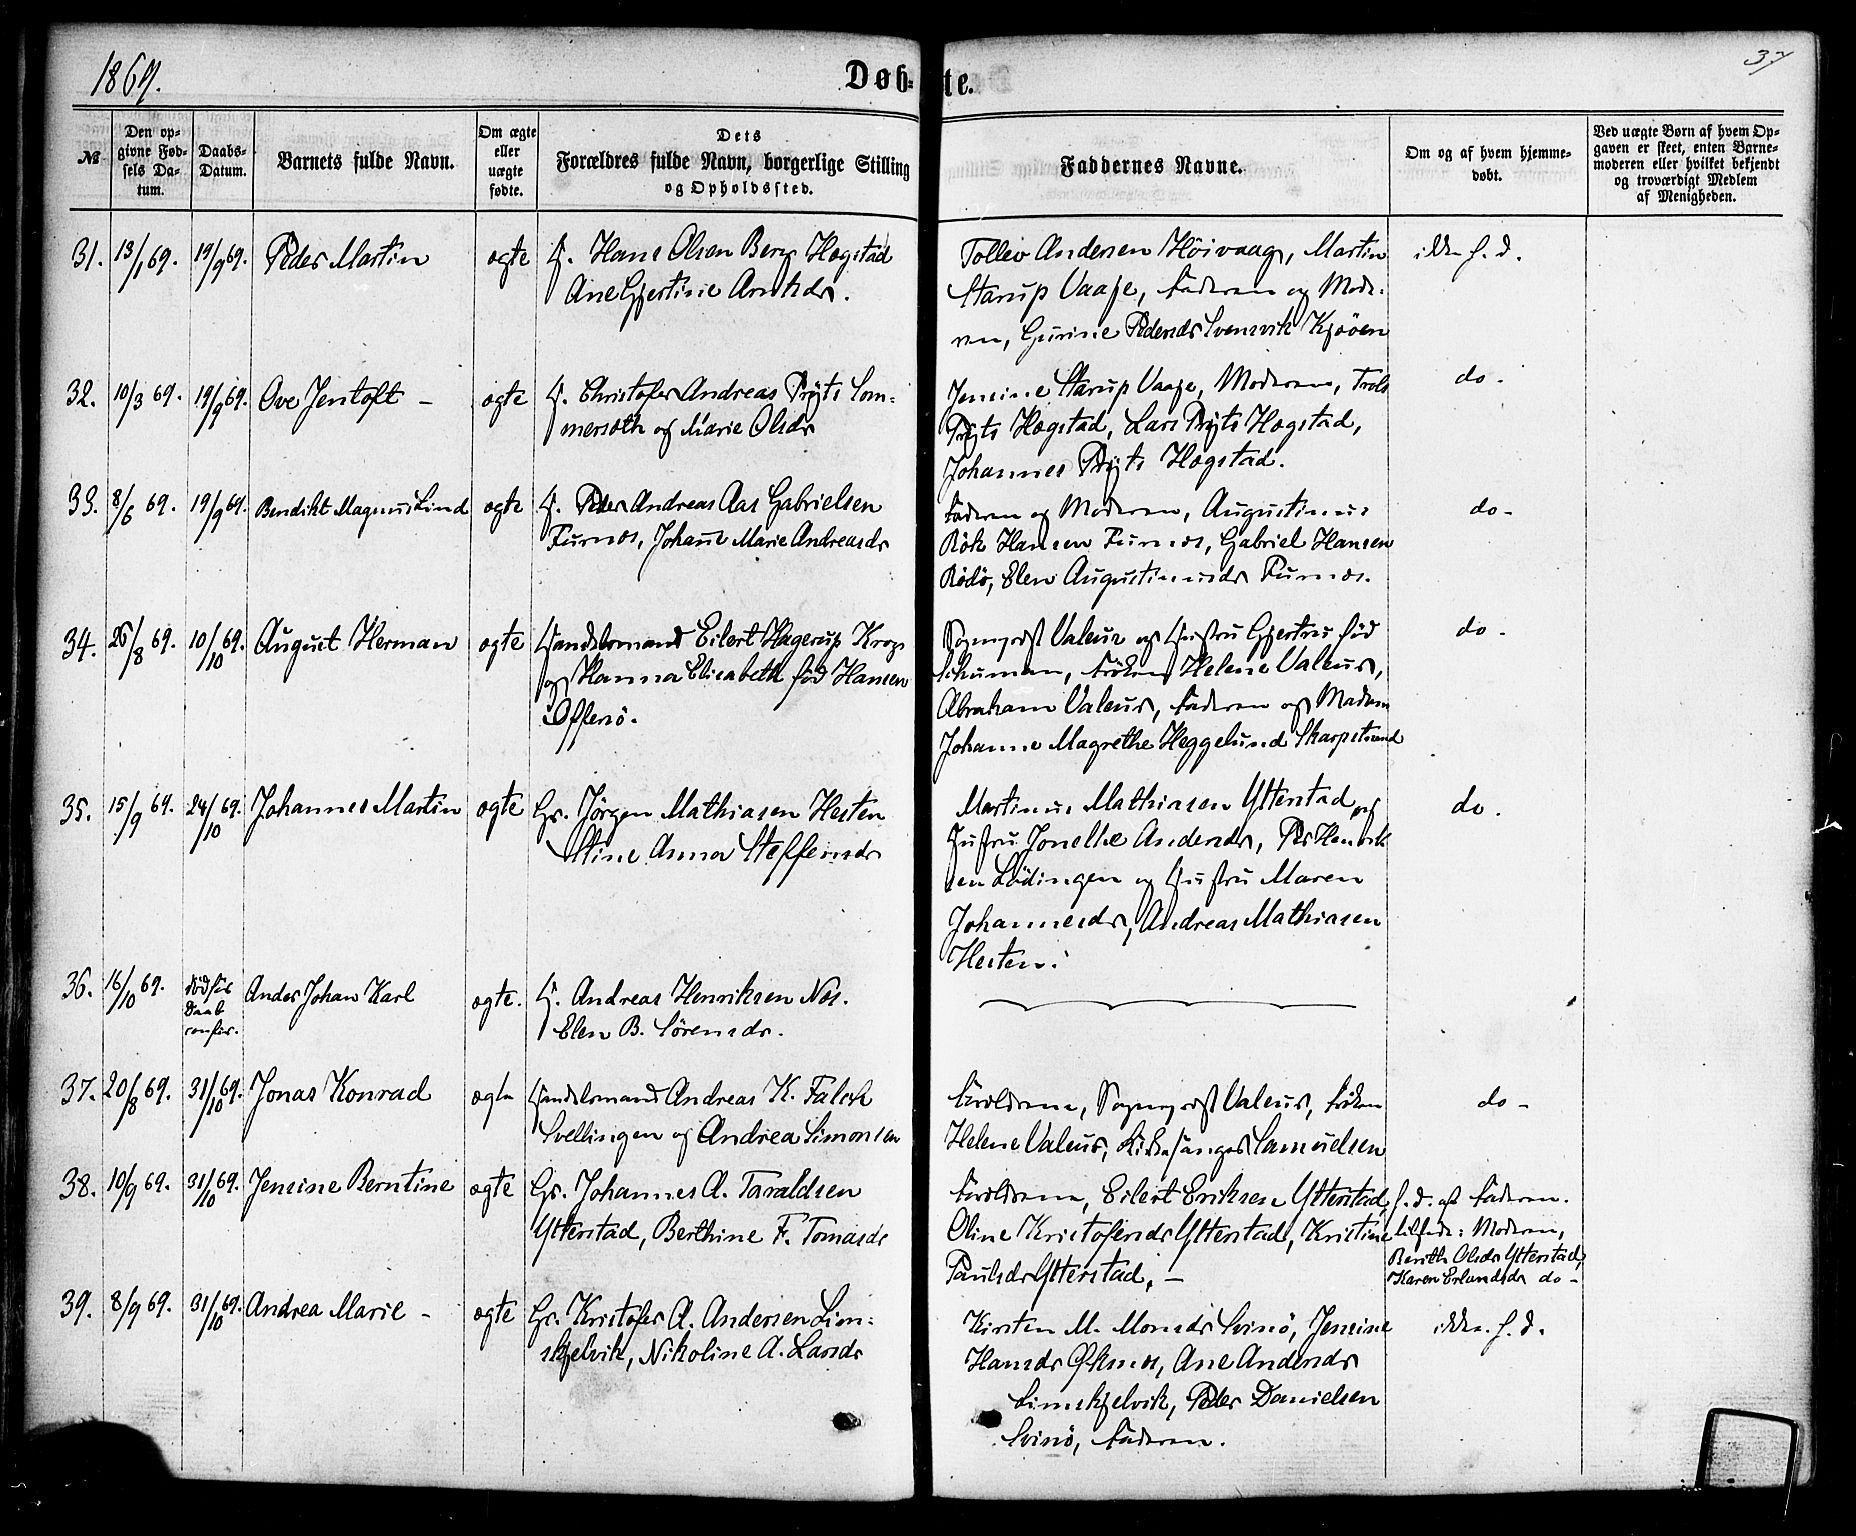 1869.
Døb-
te.
37
№
Den op-
givne Fød-
sels Da-
tum.
Daabs-
Datum.
Barnets fulde Navn.
Om ægte
eller
uægte
fødte.
Dets
Forældres fulde Navn, borgerlige Stilling
og Opholdssted.
Faddernes Navne.
Om og af hvem hjemme-
døbt.
Ved uægte Børn af hvem Op-
gaven er skeet, enten Barne-
moderen eller hvilket bekjendt
og troværdigt Medlem
af Menigheden.
31. 13/1 69. 19/9 69. Peder Martin ægte Hans Olsen Berg Hægstad
Ane Gjertine Arntsdr.
Tollev Andersen Höivaag, Martin
Starup Vaaje, Faderen og Mode-
ren, Gurine Pedersdr Svensvik Kjöen
ikke h. d.
32. 10/3 69. 19/9 69. Ove Jentoft - ægte Christofer Andreas Prÿts Som-
mersæth og Marie Olsdr
Jensine Starup Vaaje, Moderen, Trols
Prÿts Hægstad, Lars Prÿts Hægstad,
Johannes Prÿts Hægstad.
do.
33. 8/6 69. 19/9 69. Bendikt Magnus Lind ægte Peder Andreas Aas Gabrielsen
Furnæs, Johane Marie Andreasdr
Faderen og Moderen, Augustinus
Rök Hansen Furnæs, Gabriel Hansen
Rödö, Elen Augustinusdr Furnæs.
do-
34. 26/8 69. 10/10 69. August Herman ægte Handelsmand Eilert Hagerup Krog
og Hanna Elisabeth född Hansen
Offersö.
Sognepræst Valeur og Hustru Gjertru föd
Schuman, Fröken Helene Valeur,
Abraham Valeur, Faderen og Madam
Johanne Magrethe Heggelund Skarpstrand
do.
35. 15/9 69. 24/10 69. Johannes Martin ægte Gr. Jörgen Mathiasen Hesten
Stine Anna Steffensdr
Martinus Mathiasen Ytterstad og
Hustru Jonette Andersdr, Per Henrik
sen Lödingen og Hustru Maren
Johannesdr, Andreas Mathiasen
Hesten.
do.
36. 16/10 69. död för
Daab
confer.
Anders Johan Karl ægte. Andreas Henriksen Næs.
Elen B. Sörensdr.
37. 20/8 69. 31/10 69. Jonas Konrad ægte Handelsmand Andreas K. Falck
Svellingen og Andrea Simonsen
Forældrene, Sognepræst Valeur, Fröken
Helene Valeur, Kirkesanger Samuelsen
do-
38. 10/9 69. 31/10 69. Jensine Berntine ægte Gr. Johannes A. Taraldsen
Ytterstad, Berthine F. Tomasdr
Forældrene, Eilert Eriksen Ytterstad,
Oline Kristofersdr Ytterstad, Kristine
Paulsdr Ytterstad. -
h. d. af Faderen.
tilstede: Moderen,
Berith Olsdr Ytterstad,
Karen Erlandsdr do-
39. 8/9 69. 31/10 69. Andrea Marie - ægte Gr. Kristofer A. Andersen Lim-
skjelvik, Nikoline A. Larsdr
Kirsten M. Monsdr Svinö, Jensine
Hansdr Öksnes, Ane Andersdr
Limskjelvik, Peder Danielsen
Svinö, Faderen.
ikke. h. d.